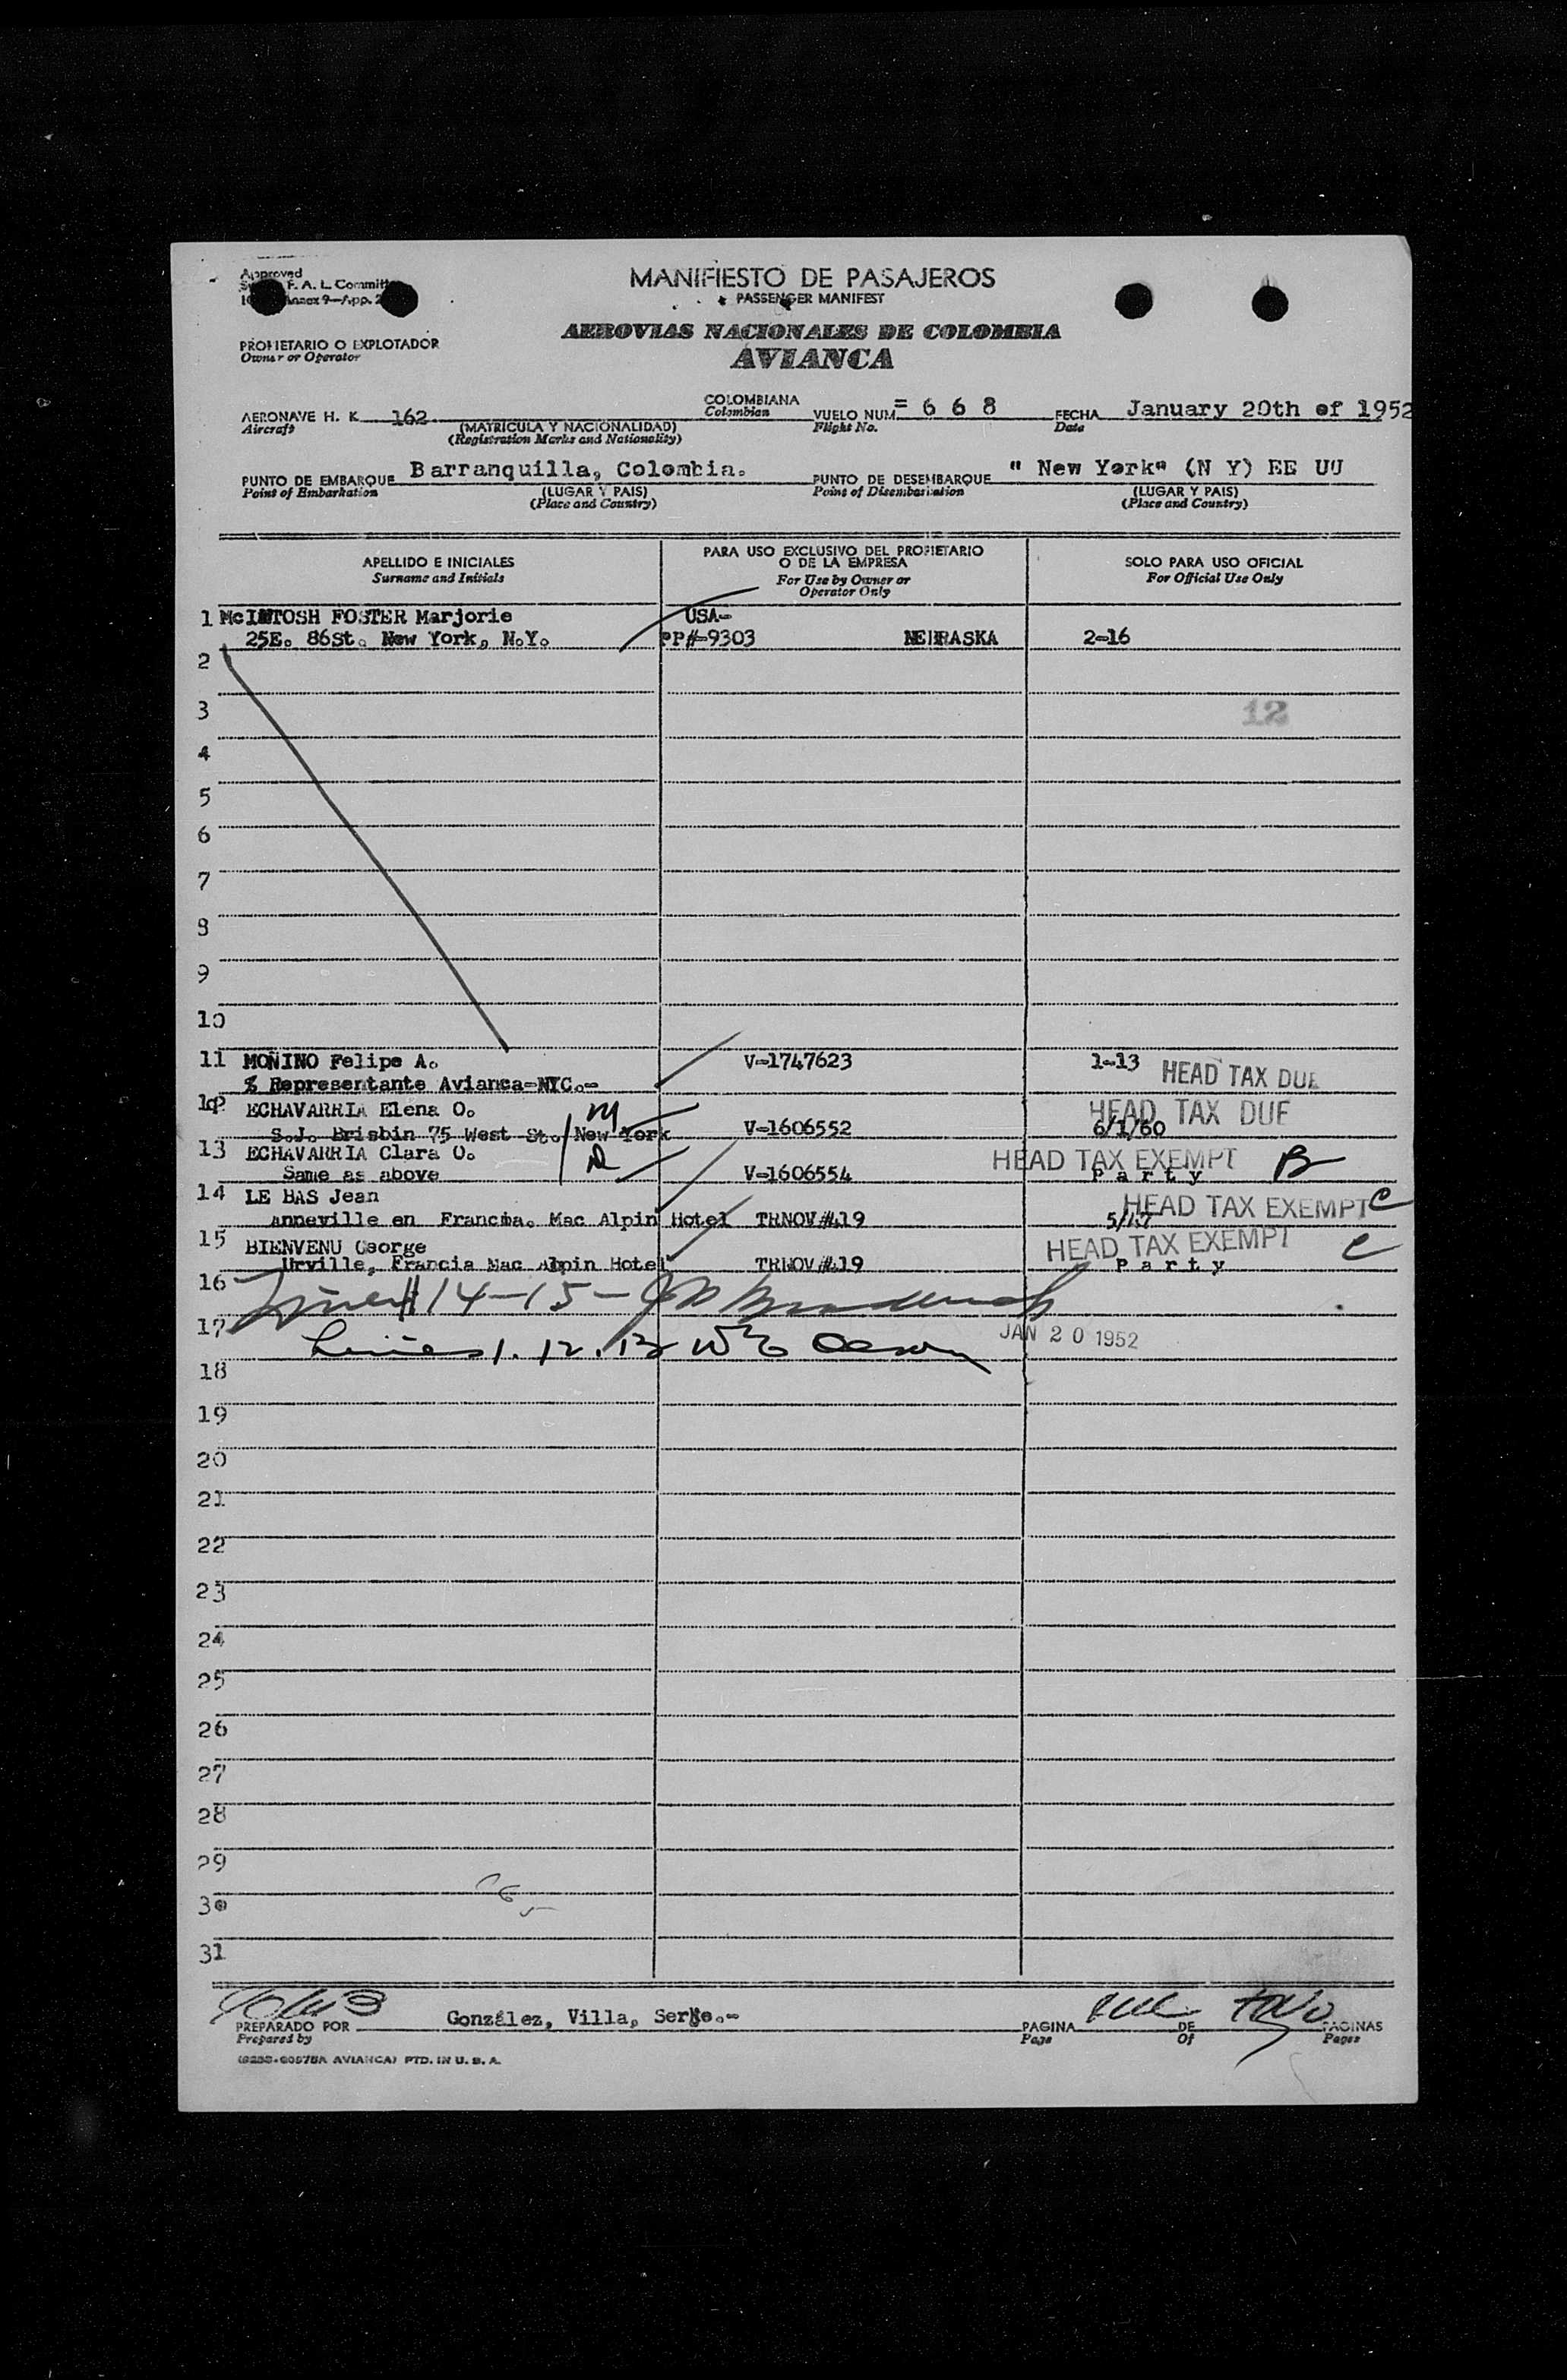 Approved
F. A. L. Committ
Annex 9—App. 2
MANIFIESTO DE PASAJEROS
PASSENGER MANIFEST
AEROVIAS NACIONALES DE COLOMBIA
AVIANCA
PROPIETARIO O EXPLOTADOR
Owner or Operator
AERONAVE H. K. 162
Aircraft
(MATRICULA Y NACIONALIDAD)
(Registration Marks and Nationality)
COLOMBIANA
Colombian
VUELO NUM = 6 6 8
Flight No.
FECHA January 20th of 1952
Date
PUNTO DE EMBARQUE Barranquilla, Colombia.
Point of Embarkation
(LUGAR Y PAIS)
(Place and Country)
PUNTO DE DESEMBARQUE " New York" (N Y) EE UU
Point of Disembarkation
(LUGAR Y PAIS)
(Place and Country)
APELLIDO E INICIALES
Surname and Initials
PARA USO EXCLUSIVO DEL PROPIETARIO
O DE LA EMPRESA
For Use by Owner or
Operator Only
SOLO PARA USO OFICIAL
For Official Use Only
1 McINTOSH FOSTER Marjorie USA-
25E. 86St. New York, N.Y. PP#-9303 NEBRASKA 2-16
2
3 12
4
5
6
7
8
9
10
11 MOÑINO Felipe A. V-1747623 1-13 HEAD TAX DUE
% Representante Avianca-NYC.-
12 ECHAVARRIA Elena O. M HEAD TAX DUE
S.J. Brisbin 75 West St. New York V-1606552 6/1/60
13 ECHAVARRIA Clara O. D HEAD TAX EXEMPT B
Same as above V-1606554 P a r t y
14 LE BAS Jean HEAD TAX EXEMPT C
Anneville en Francia. Mac Alpin Hotel TRNOV#419 5/47
15 BIENVENU George HEAD TAX EXEMPT C
Urville, Francia Mac Alpin Hotel TRNOV#419 P a r t y
16 14-15-
17 Lines 1. 12. 13 JAN 20 1952
18
19
20
21
22
23
24
25
26
27
28
29
30
31
PREPARADO POR González, Villa,
Prepared by
PAGINA DE two PAGINAS
Page Of Pages
AVIANCA) PTD. IN U. S. A.